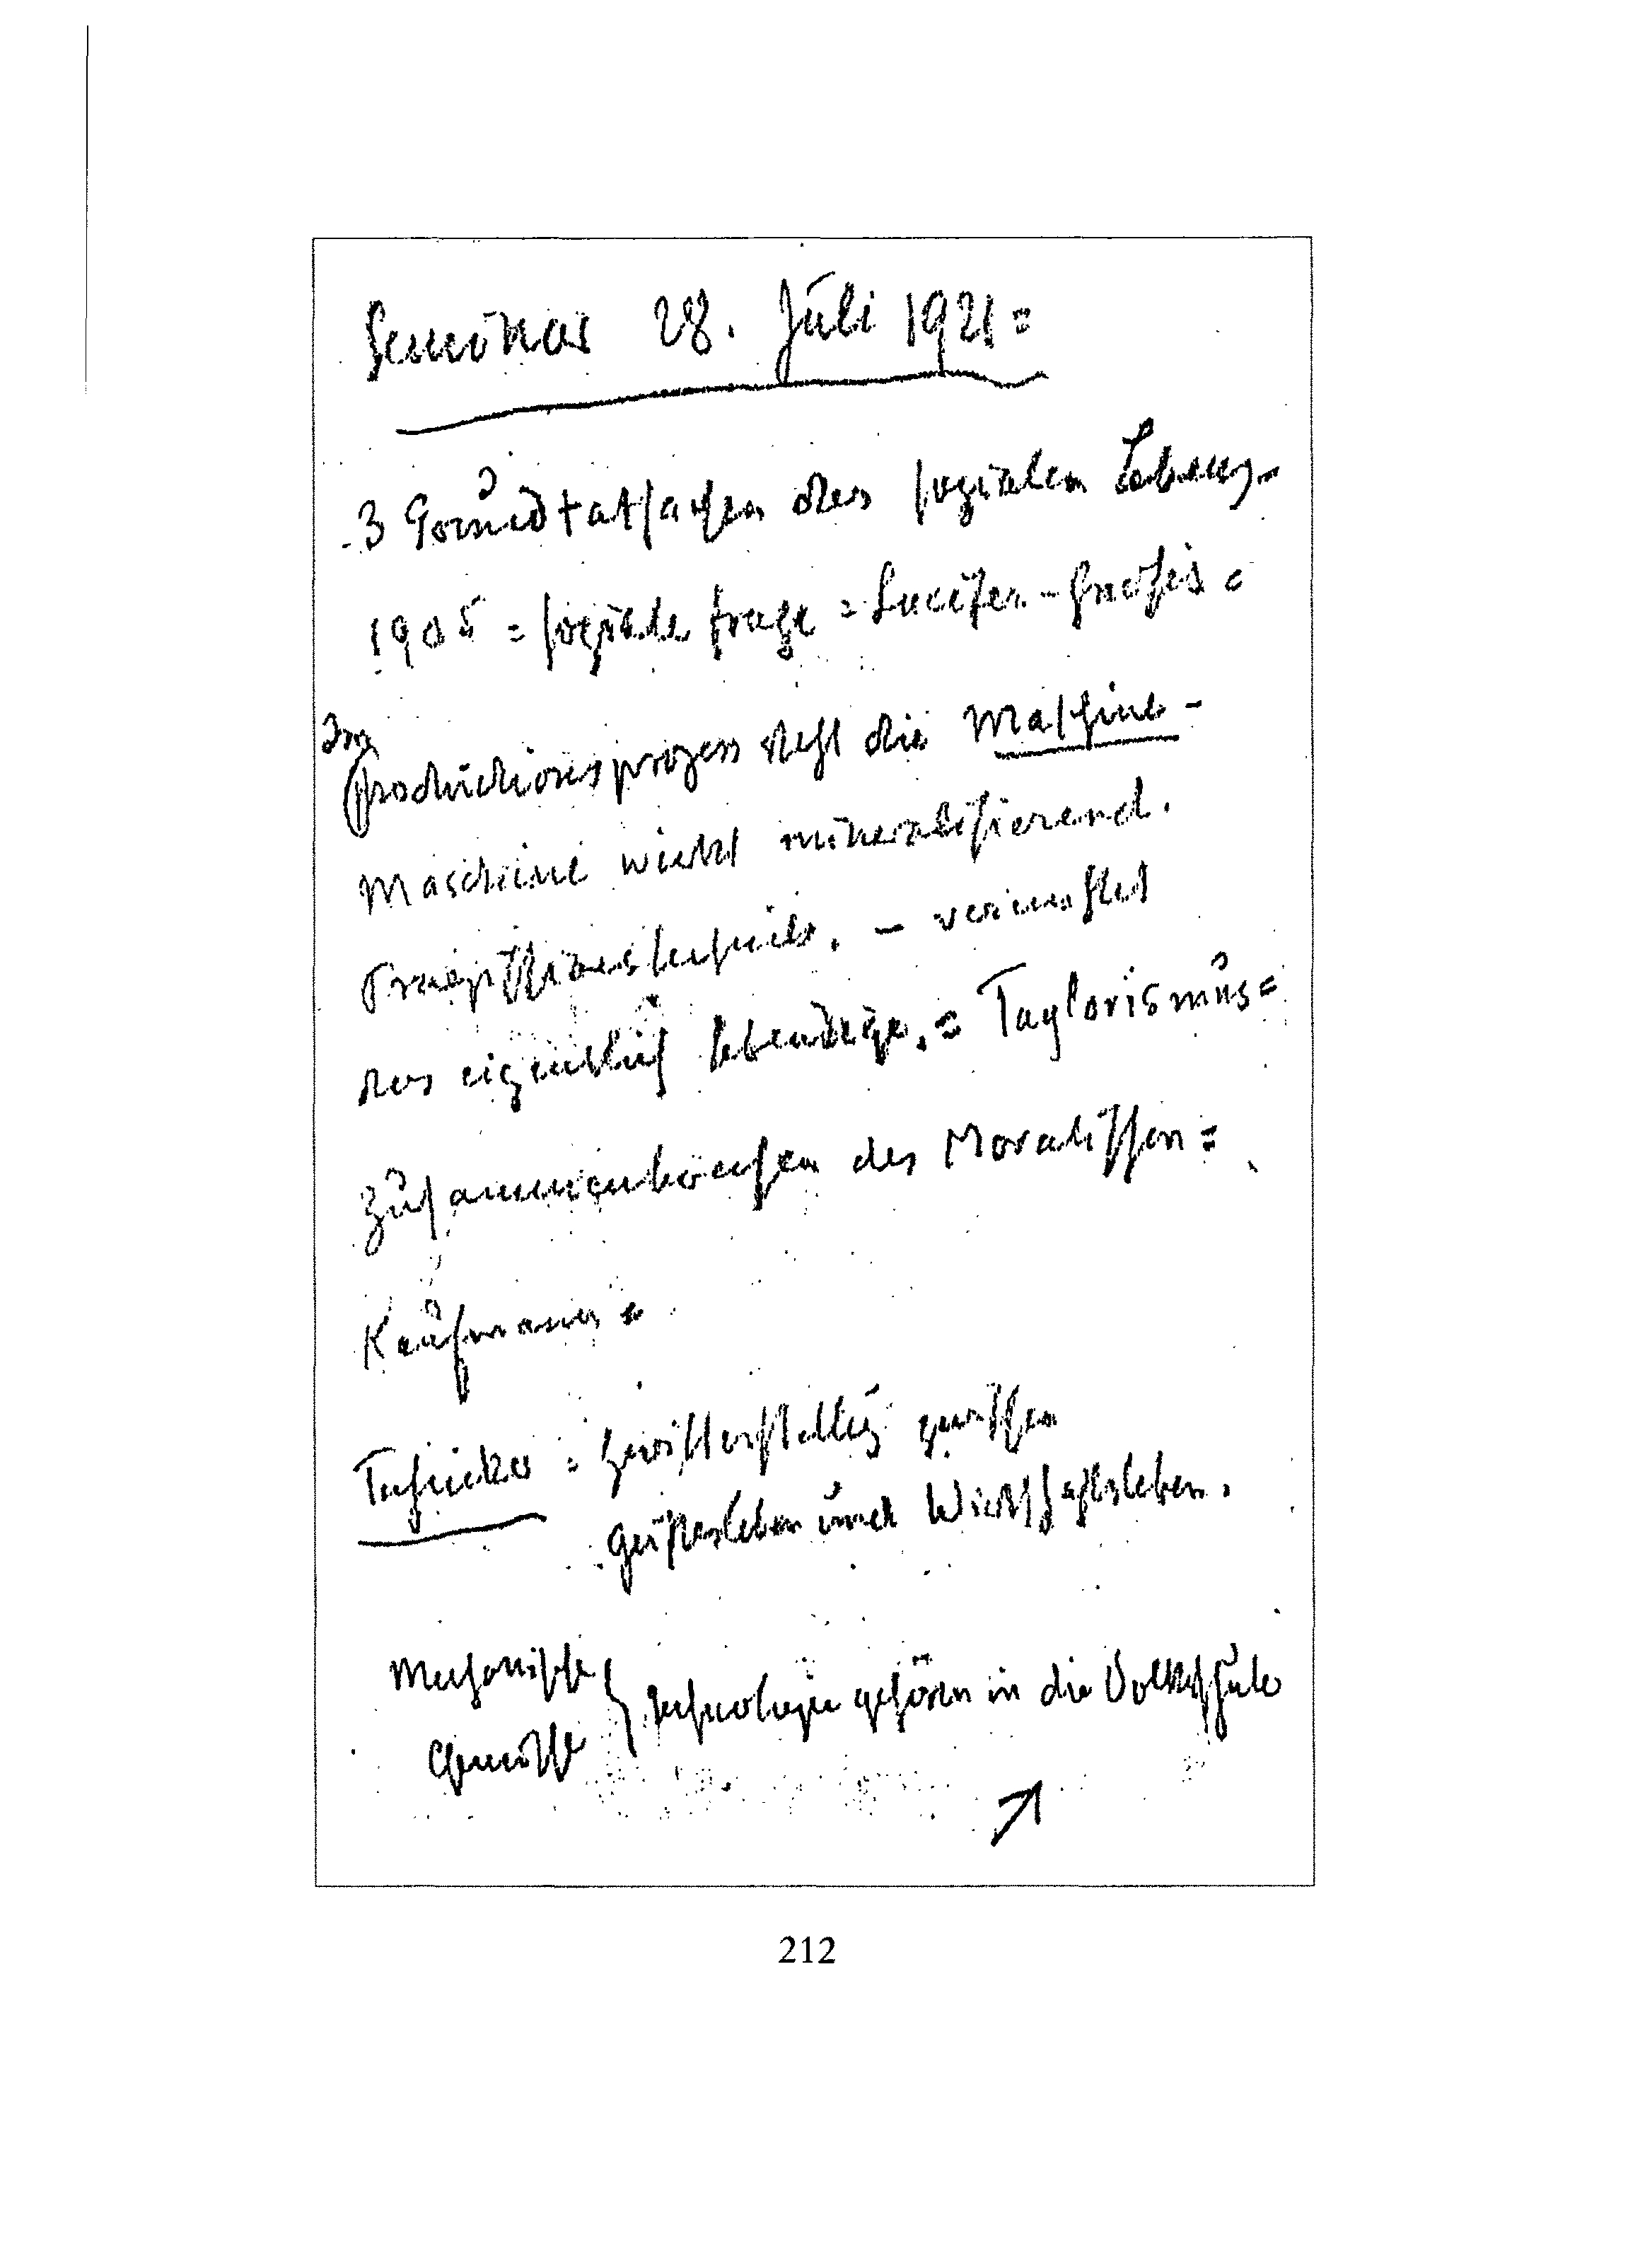 Seminar 28. Juli 1921 =
3 Grundtatsachen des sozialen Lebens -
1905 = soziale Frage = Lucifer-Gnosis =
Im
Productionsprozess steht die Maschine -
Maschine wirkt mineralisierend.
das eigentlich lebendige. = Taylorismus =
des Moralischen =
Kaufmann =
Techniker = Zwitterstellung zwischen
Geistesleben und Wirtschaftsleben.
Mechanische
Chemische } Technologie gehören in die Volksschule
212